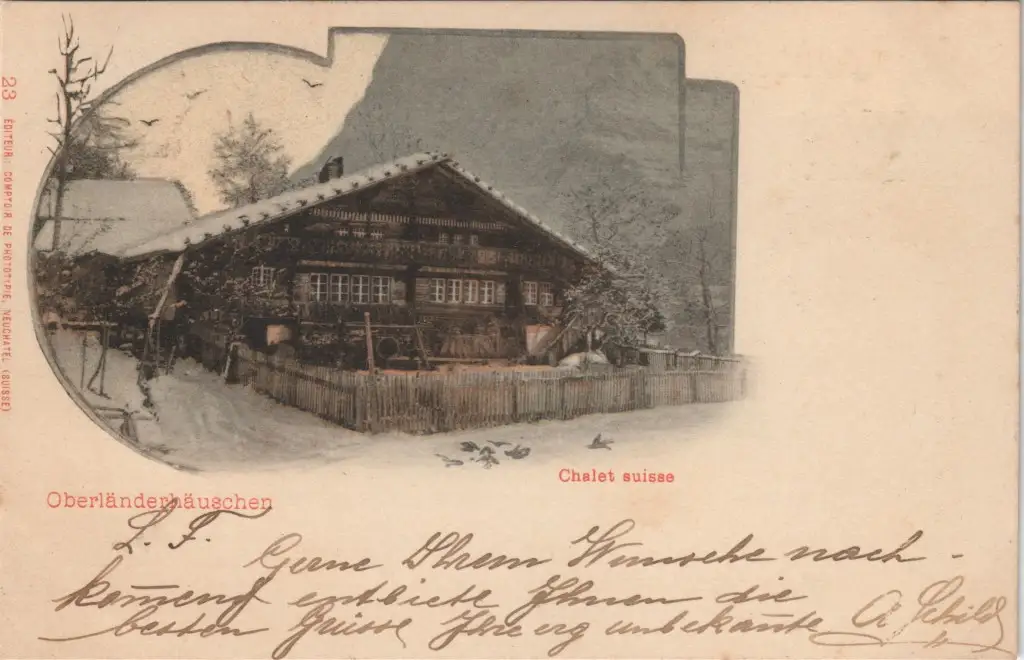 23 ÉDITEUR: COMPTOIR DE PHOTOTYPIE, NEUCHATEL (SUISSE)
Chalet suisse
Oberländerhäuschen
L. F.
Gerne Ihrem Wunsche nach-
kom̄end entbiete Ihnen die
besten Grüsse Ihre erg unbekan̄te A Schild